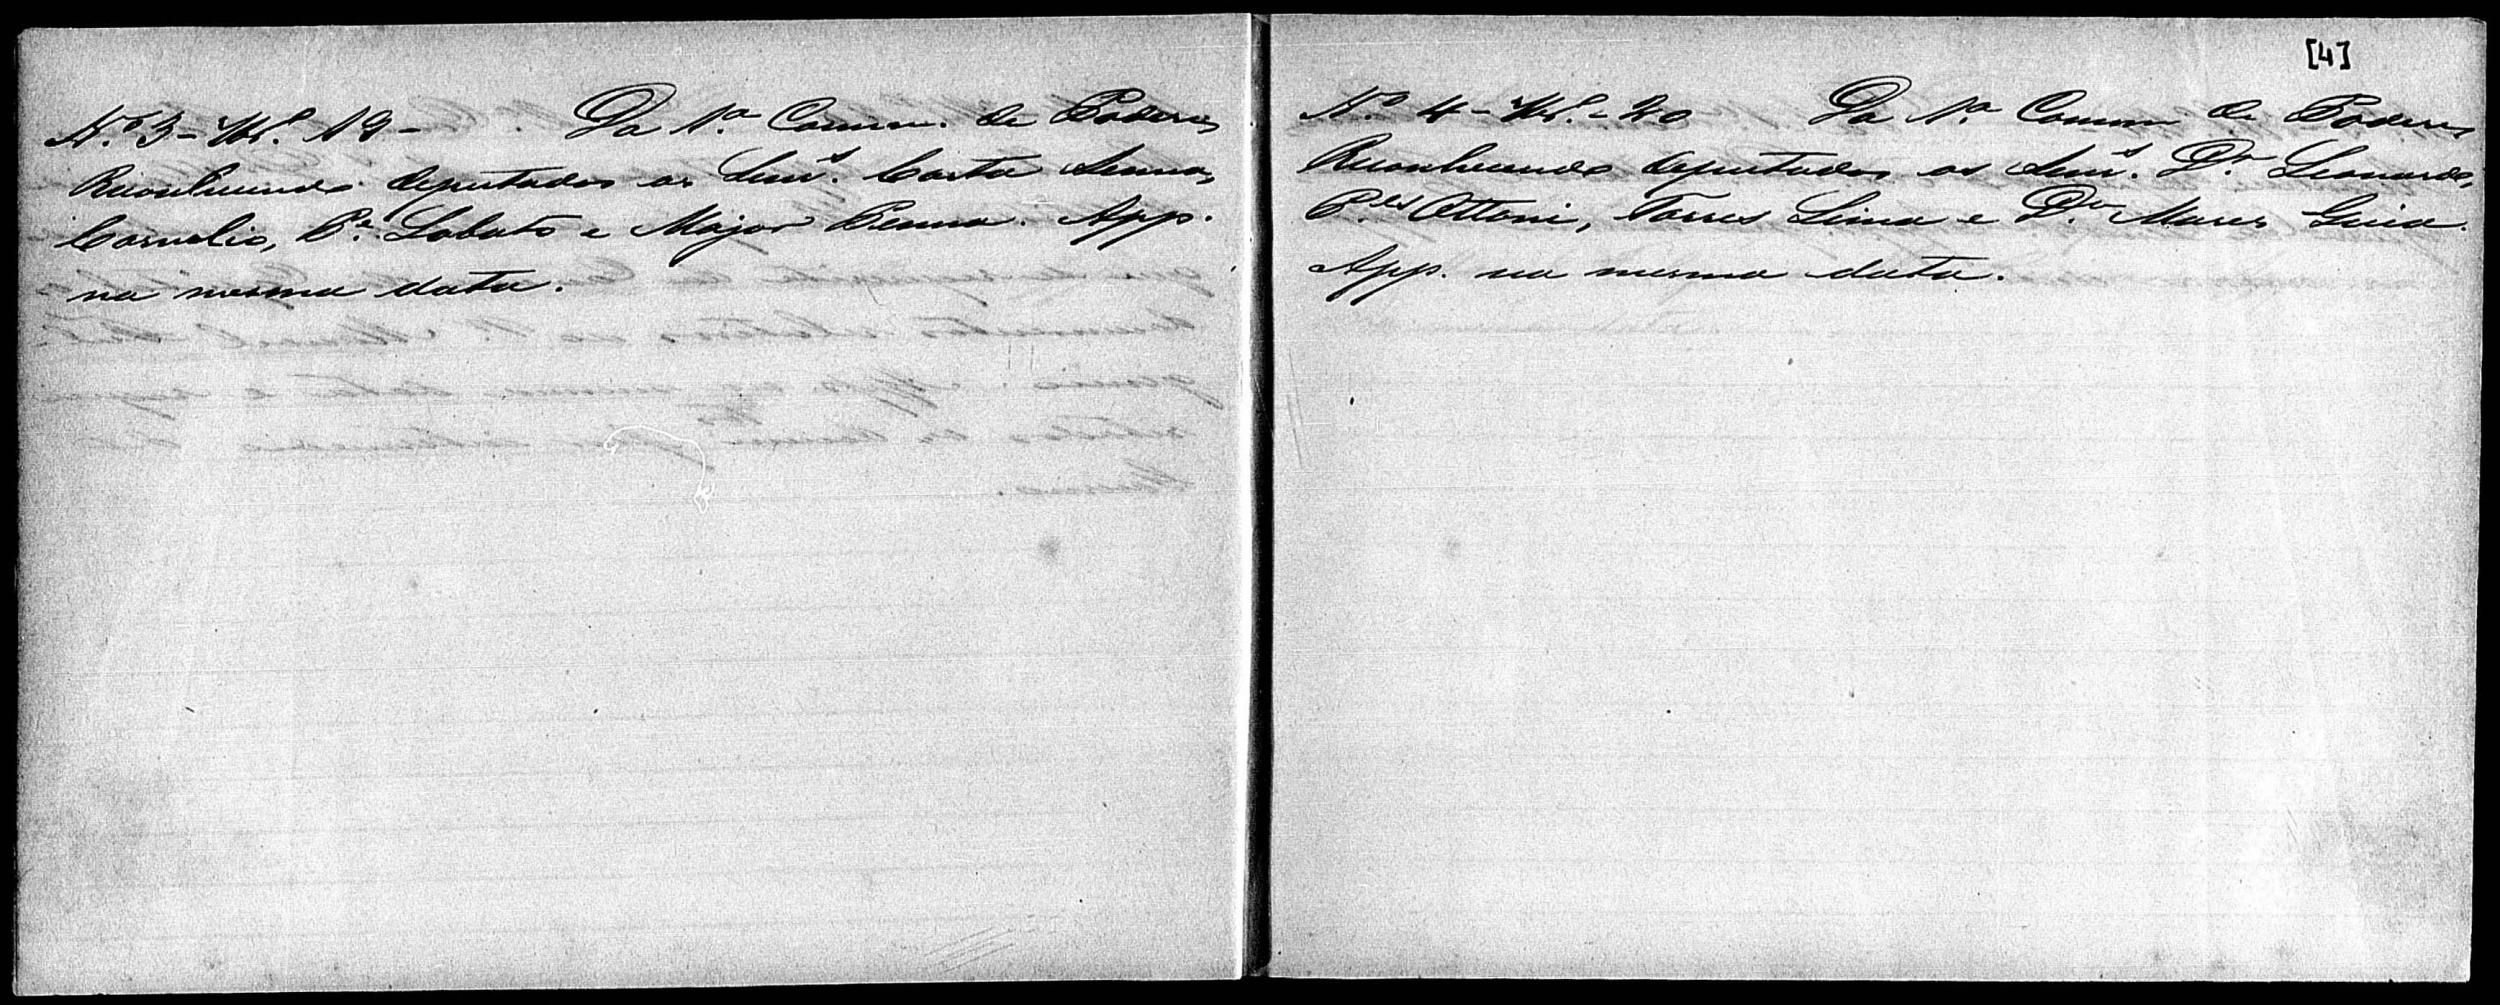 Nº 3 - Fl. 19 - Da 1.ª Comm. de Poderes
Reconhecendo deputados os Senrs. Costa Senna,
Cornelio, Pe. Lobato e Major Penna. App.
na mesma data.
[4]
Nº 4 - Fl. - 20 Da 1.ª Comm de Poderes
Reconhecendo deputados os Senrs. Dr. Leonardo,
Ottoni, Torres Lima e Dr. Mares Guia.
App. na mesma data.